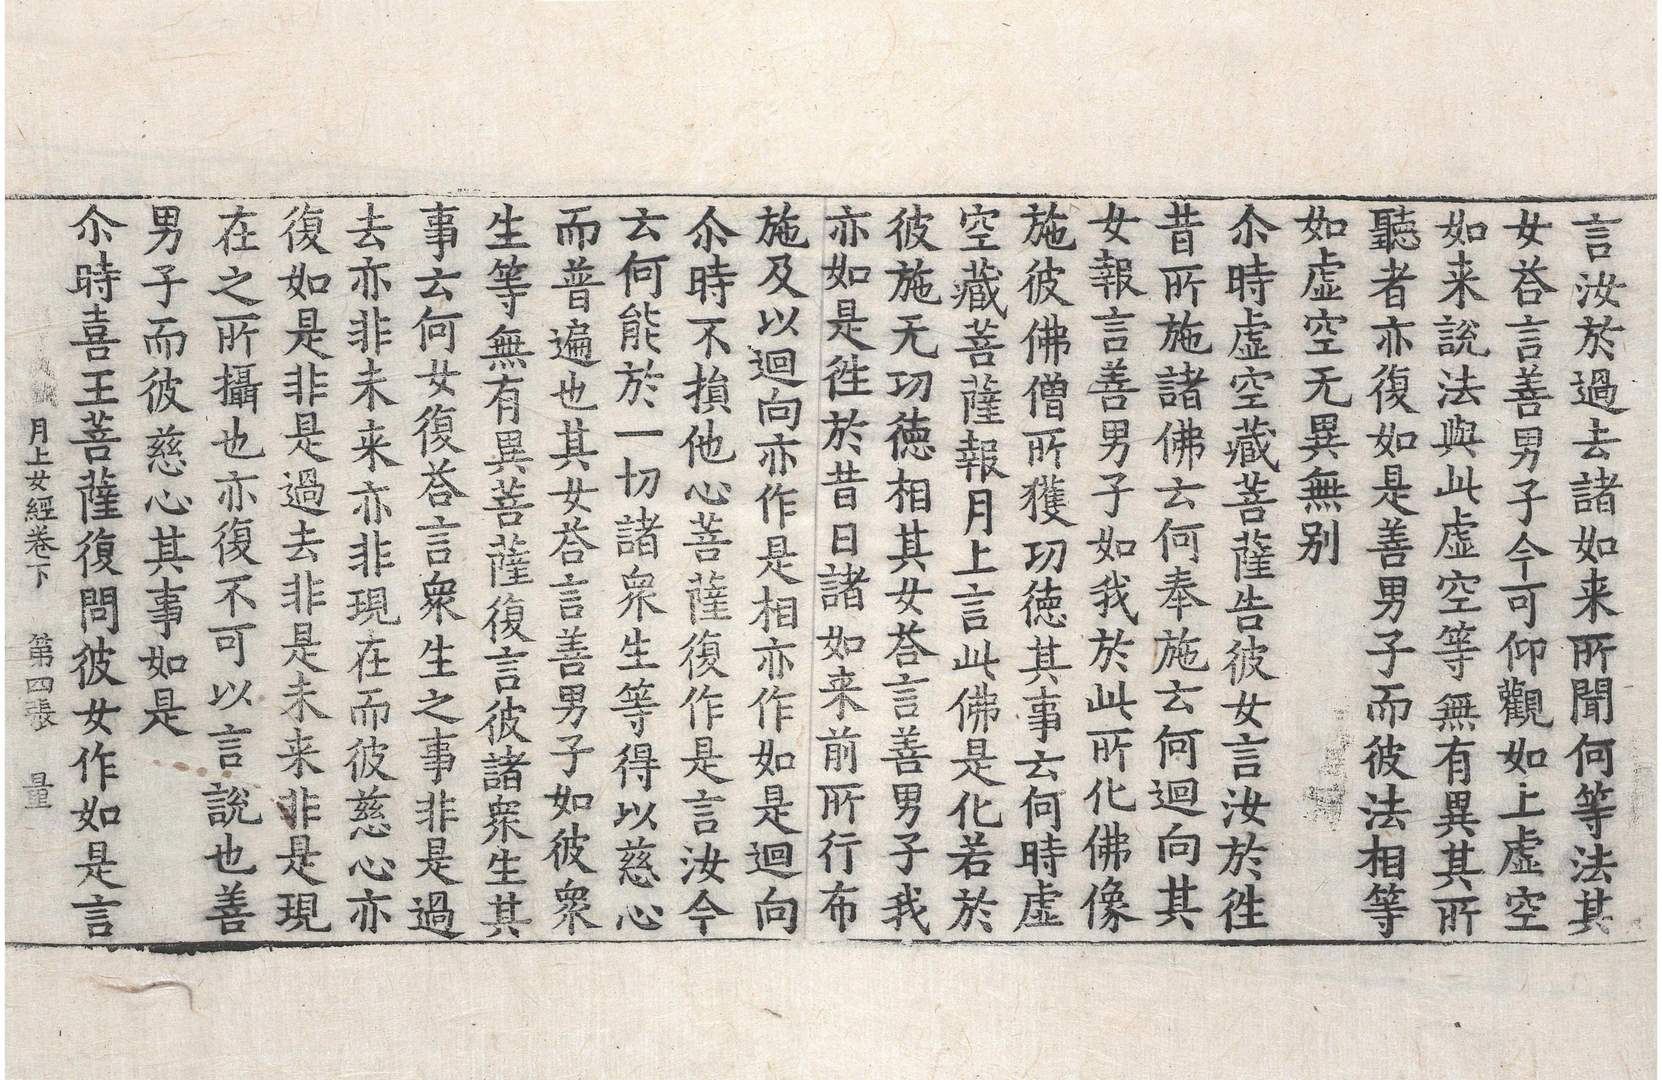 言汝於過去諸如来所聞何等法其
女荅言善男子今可仰觀如上虛空
如来說法與此虛空等無有異其所
聽者亦復如是善男子而彼法相等
如虛空无異無别
尒時虛空藏菩薩告彼女言汝於徃
昔所施諸佛云何奉施云何迴向其
女報言善男子如我於此所化佛像
施彼佛僧所獲功徳其事云何時虛
空藏菩薩報月上言此佛是化若於
彼施无功徳相其女荅言善男子我
亦如是徃於昔日諸如来前所行布
施及以迴向亦作是相亦作如是迴向
尒時不損他心菩薩復作是言汝今
云何能於一切諸衆生等得以慈心
而普遍也其女荅言善男子如彼衆
生等無有異菩薩復言彼諸衆生其
事云何女復荅言衆生之事非是過
去亦非未来亦非現在而彼慈心亦
復如是非是過去非是未来非是現
在之所攝也亦復不可以言說也善
男子而彼慈心其事如是
尒時喜王菩薩復問彼女作如是言
月上女經卷下 第四張 量